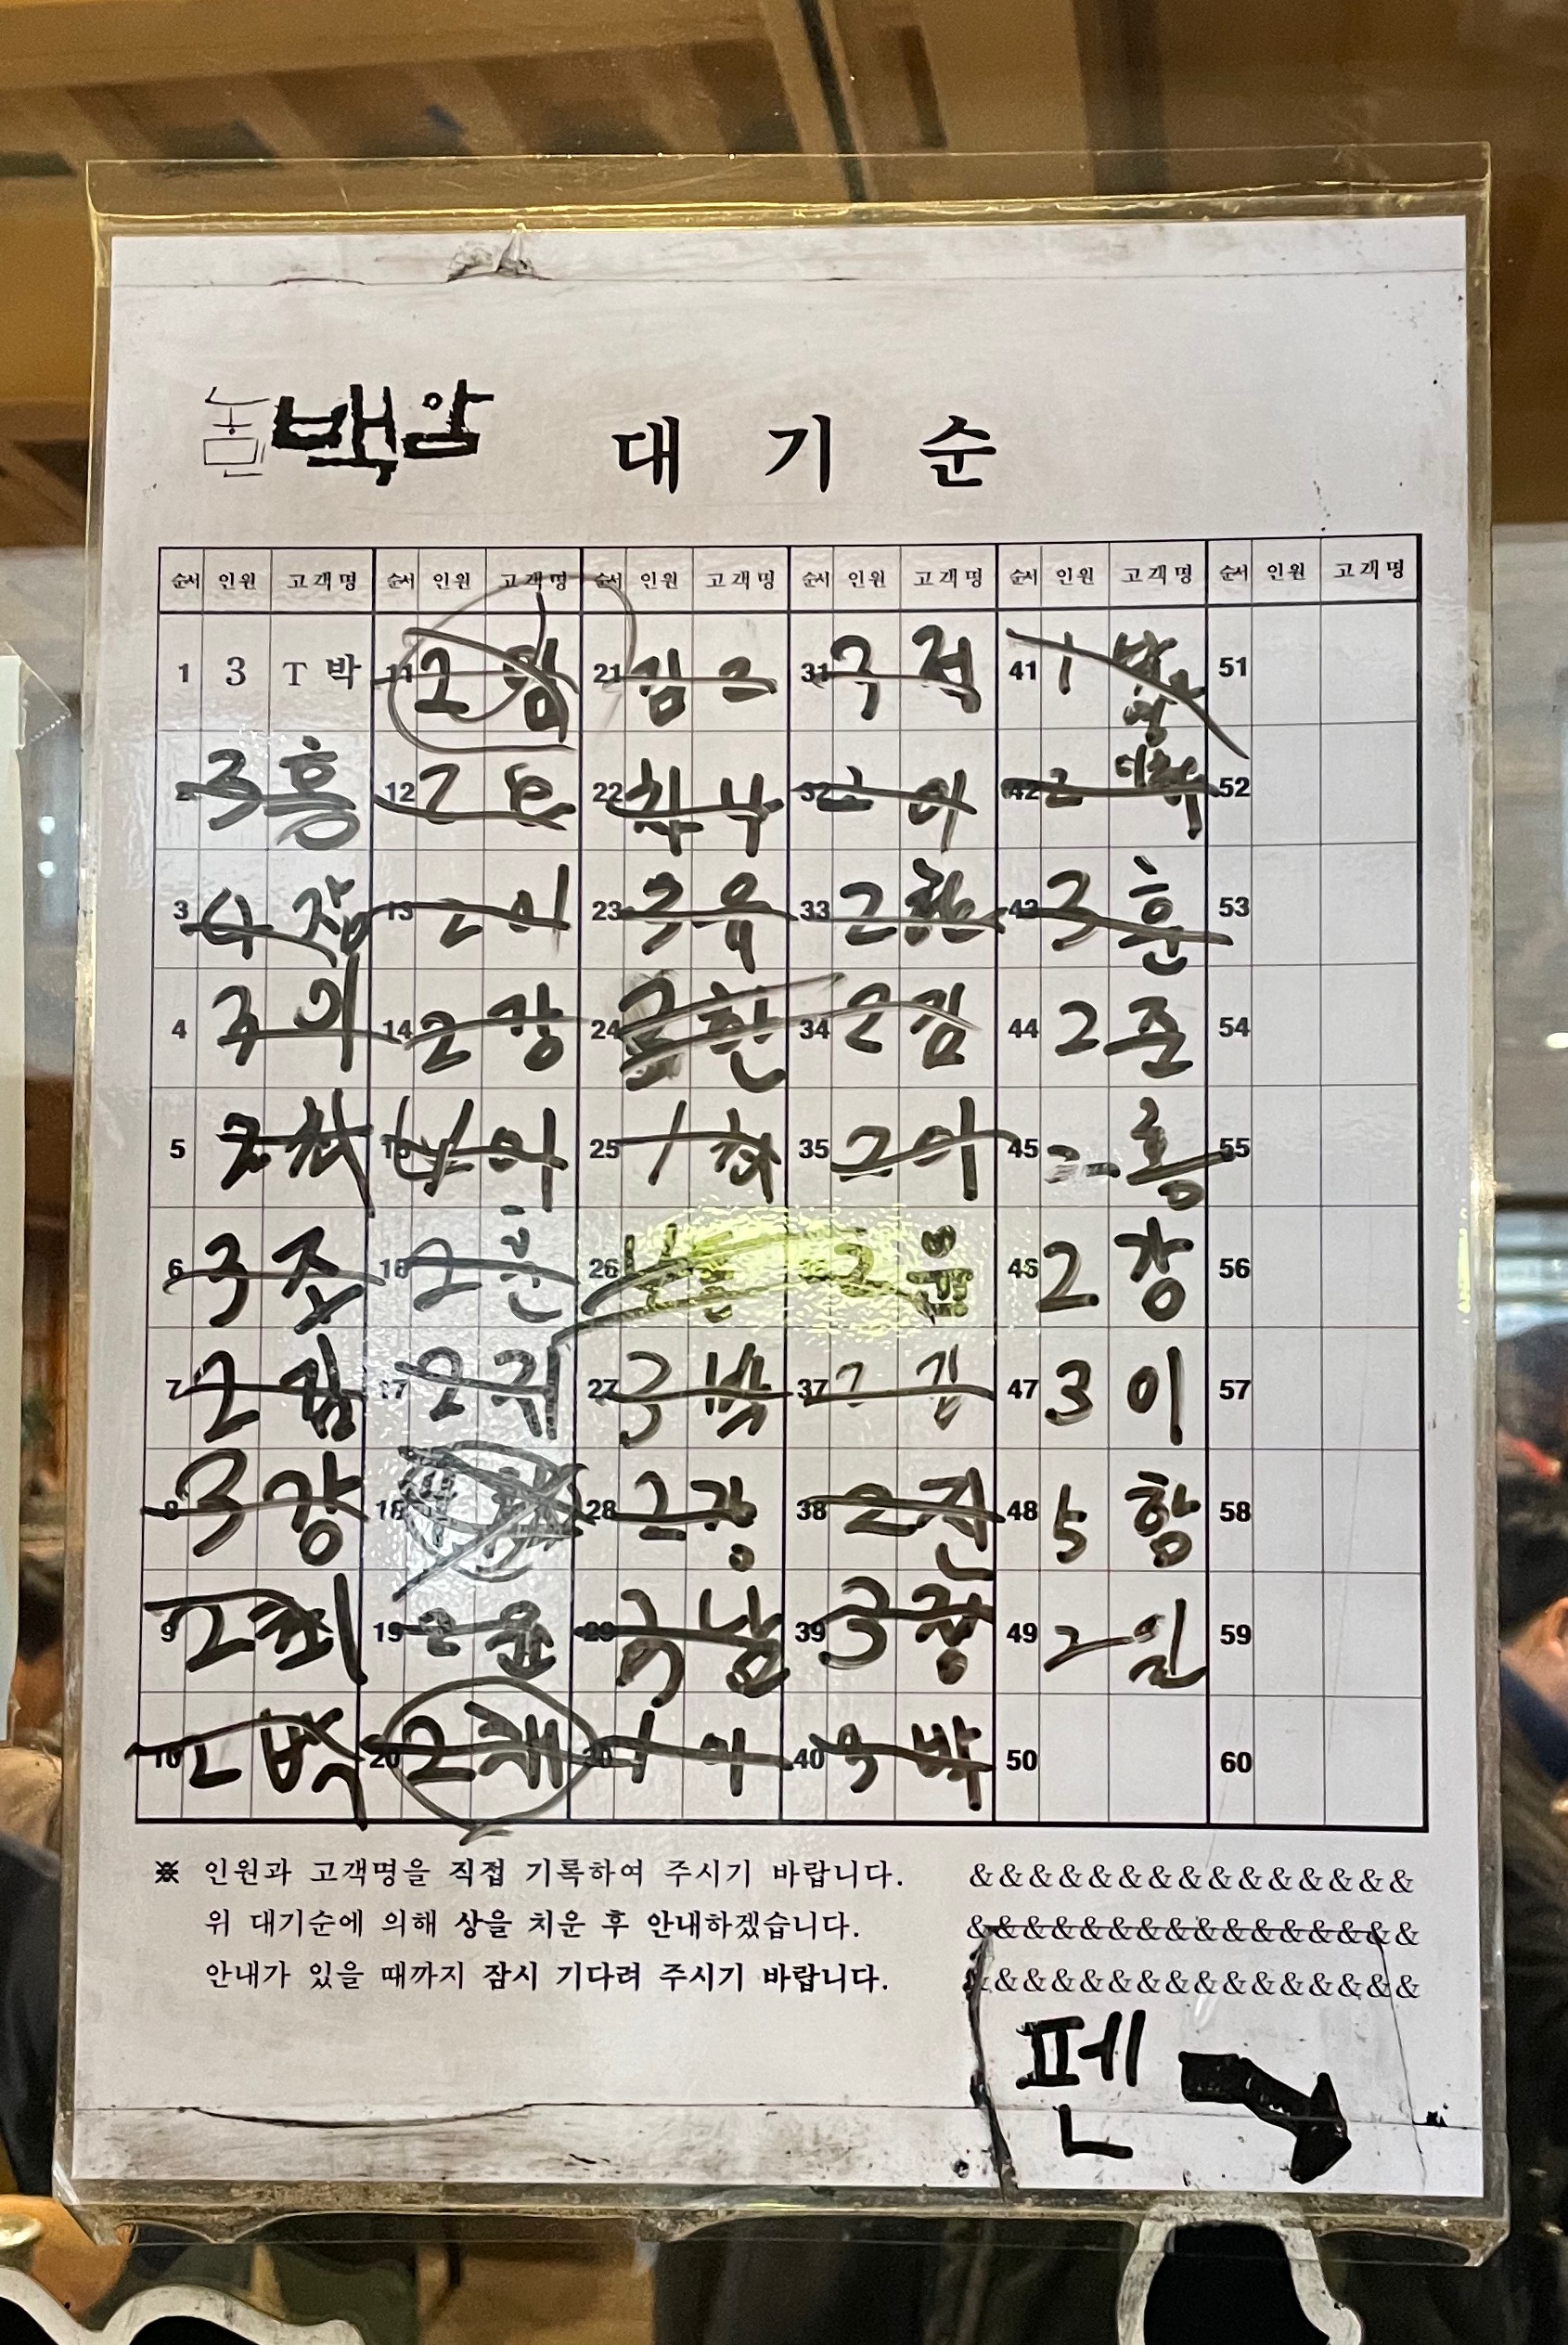 농민백암 대기순
순서 인원 고객명 순서 인원 고객명 순서 인원 고객명 순서 인원 고객명 순서 인원 고객명 순서 인원 고객명
1 3 T 박 11 2 임 21 김 2 31 3 적 41 1 51
2 3 홍 12 2 22 32 2 이 42 2 52
3 4 13 2 이 23 3 유 33 2 한 43 3 훈 53
4 3 이 14 2 강 24 한 34 2 김 44 2 준 54
5 2 최 15 이 25 1 최 35 2 이 45 2 홍 55
6 3 조 16 2 26 2 윤 46 2 강 56
7 2 김 17 2 귀 27 3 박 37 2 김 47 3 이 57
8 3 강 18 28 2 강 38 2 진 48 5 함 58
9 2 최 19 2 윤 29 3 남 39 3 장 49 2 일 59
10 2 박 20 2 채 30 1 이 40 3 박 50 60
※ 인원과 고객명을 직접 기록하여 주시기 바랍니다. &&&&&&&&&&&&&&&
위 대기순에 의해 상을 치운 후 안내하겠습니다. &&&&&&&&&&&&&&&&
안내가 있을 때까지 잠시 기다려 주시기 바랍니다. &&&&&&&&&&&&&&&&
펜